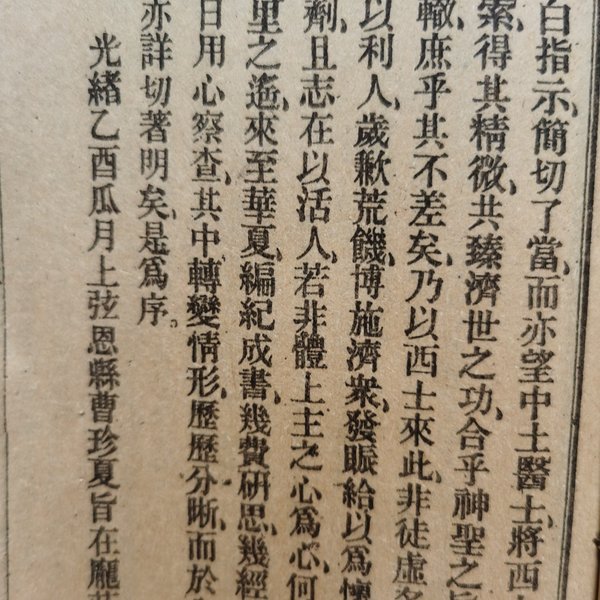 白指示、簡切了當、而亦望中土醫士、將西
索、得其精微、共臻濟世之功、合乎神聖之旨
轍、庶乎其不差矣、乃以西士來此、非徒虛名
以利人、歲歉荒饑、博施濟衆、發賑給以爲懷
劑、且志在以活人、若非體上主之心爲心、何
里之遙、來至華夏、編紀成書、幾費研思、幾經
日用心察查、其中轉變情形、歷歷分晰、而於
亦詳切著明矣、是爲序。
光緒乙酉瓜月上弦恩縣曹珍夏旨在龐